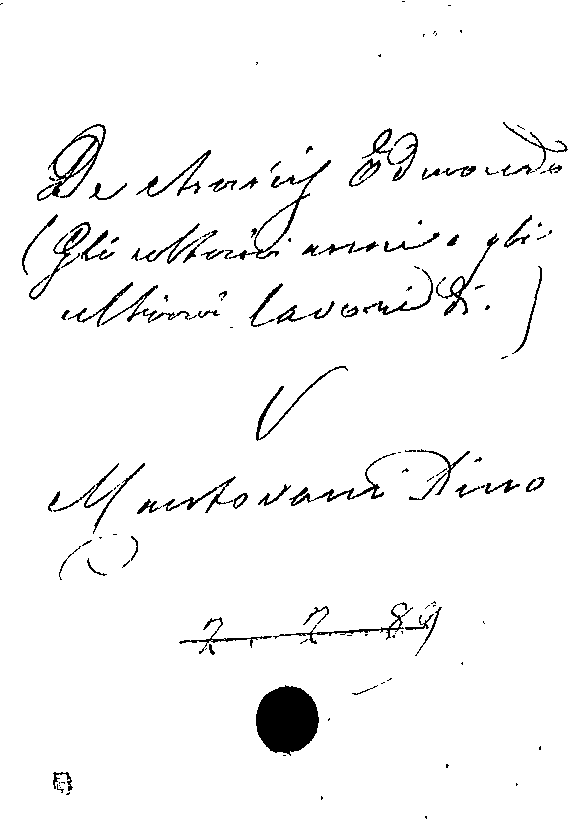 De Amicis Edmondo
(Gli ultimi anni e gli
ultimi lavori di.)
V
Mantovani Dino
7. 7. 89